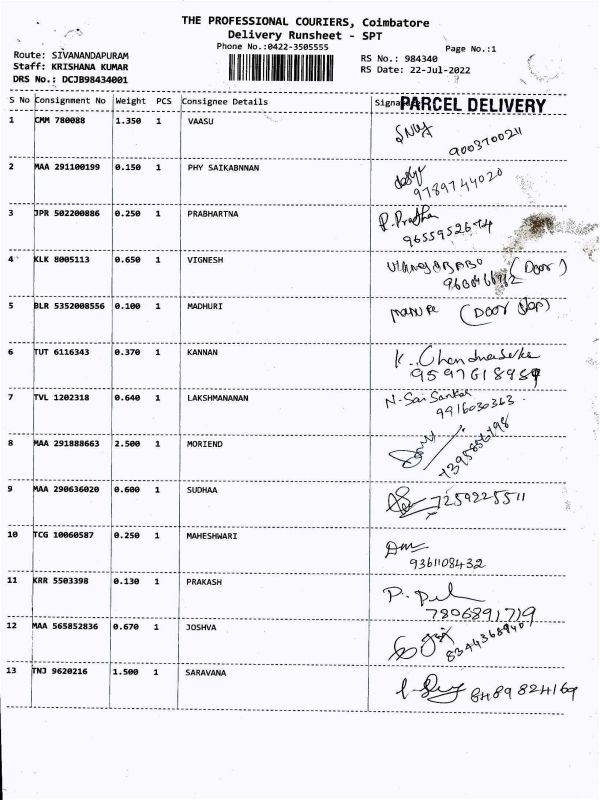 THE PROFESSIONAL COURIERS, Coimbatore
Delivery Runsheet - SPT
Phone No.:0422-3505555
Page No.:1
Route: SIVANANDAPURAM
RS No.: 984340
Staff: KRISHANA KUMAR
RS Date: 22-Jul-2022
DRS No.: DCJB98434001
S No Consignment No Weight PCS Consignee Details
PARCEL DELIVERY
1 CMM 780088 1.350 1 VAASU
2 MAA 291100199 0.150 1 PHY SAIKABNNAN
9789744020
3 JPR 502200886 0.250 1 PRABHARTNA
P. Pratha
4 KLK 8005113 0.650 1 VIGNESH
(Door)
5 BLR 5352008556 0.100 1 MADHURI
6 TUT 6116343 0.370 1 KANNAN
K. Chandrasekar
7 TVL 1202318 0.640 1 LAKSHMANANAN
N-Sai Sankar
9916030363
8 MAA 291888663 2.500 1 MORIEND
9 MAA 290636020 0.600 1 SUDHAA
7259225511
10 TCG 10060587 0.250 1 MAHESHWARI
9361108432
11 KRR 5503398 0.130 1 PRAKASH
7806891719
12 MAA 565852836 0.670 1 JOSHVA
13 TNJ 9620216 1.500 1 SARAVANA
8489824169